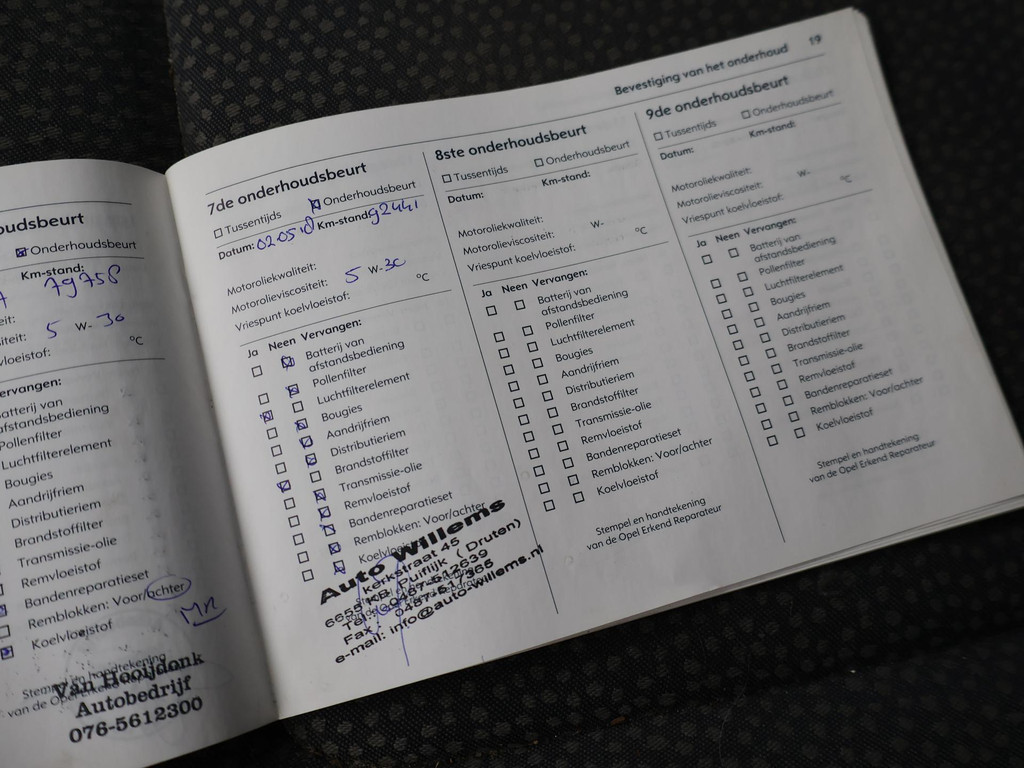 Bevestiging van het onderhoud 19
oudsbeurt
Onderhoudsbeurt
Km-stand:
79758
5 W- 30
°C
ervangen:
afstandsbediening
Pollenfilter
Luchtfilterelement
Bougies
Aandrijfriem
Distributieriem
Brandstoffilter
Transmissie-olie
Remvloeistof
Bandenreparatieset
Remblokken: Voor/achter
Koelvloeistof
MR
Stempel en handtekening
van de Opel Erkend Reparateur
Van Hooijdonk
Autobedrijf
076-5612300
7de onderhoudsbeurt
Tussentijds Onderhoudsbeurt
Datum: 02 05 Km-stand: 92441
Motoroliekwaliteit:
Motorolieviscositeit: 5 W- 30
Vriespunt koelvloeistof: °C
Ja Neen Vervangen:
Batterij van
afstandsbediening
Pollenfilter
Luchtfilterelement
Bougies
Aandrijfriem
Distributieriem
Brandstoffilter
Transmissie-olie
Remvloeistof
Bandenreparatieset
Remblokken: Voor/achter
Auto Willems
kerkstraat 45
6655 KB Puiflijk ( Druten)
Tel: 0487-512639
Fax : 0487-517366
e-mail: info@auto-willems.nl
8ste onderhoudsbeurt
Tussentijds Onderhoudsbeurt
Datum: Km-stand:
Motoroliekwaliteit:
Motorolieviscositeit: W-
Vriespunt koelvloeistof: °C
Ja Neen Vervangen:
Batterij van
afstandsbediening
Pollenfilter
Luchtfilterelement
Bougies
Aandrijfriem
Distributieriem
Brandstoffilter
Transmissie-olie
Remvloeistof
Bandenreparatieset
Remblokken: Voor/achter
Koelvloeistof
Stempel en handtekening
van de Opel Erkend Reparateur
9de onderhoudsbeurt
Tussentijds Onderhoudsbeurt
Datum: Km-stand:
Motoroliekwaliteit:
Motorolieviscositeit: W-
Vriespunt koelvloeistof: °C
Ja Neen Vervangen:
Batterij van
afstandsbediening
Pollenfilter
Luchtfilterelement
Bougies
Aandrijfriem
Distributieriem
Brandstoffilter
Transmissie-olie
Remvloeistof
Bandenreparatieset
Remblokken: Voor/achter
Koelvloeistof
Stempel en handtekening
van de Opel Erkend Reparateur